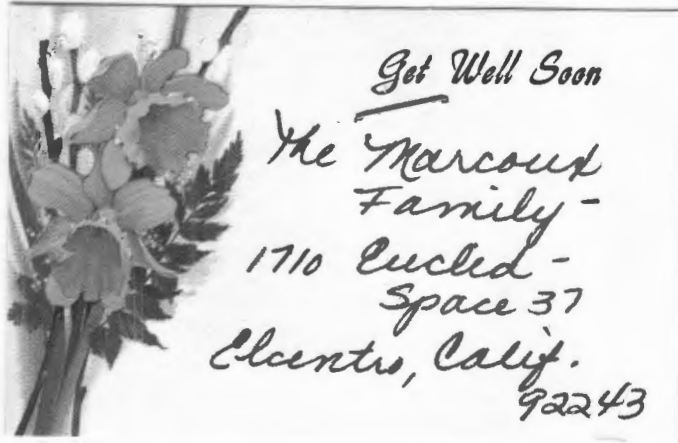 Get Well Soon
The Marcoux
Family -
1710 Euclid -
Space 37
Elcentro, Calif.
92243